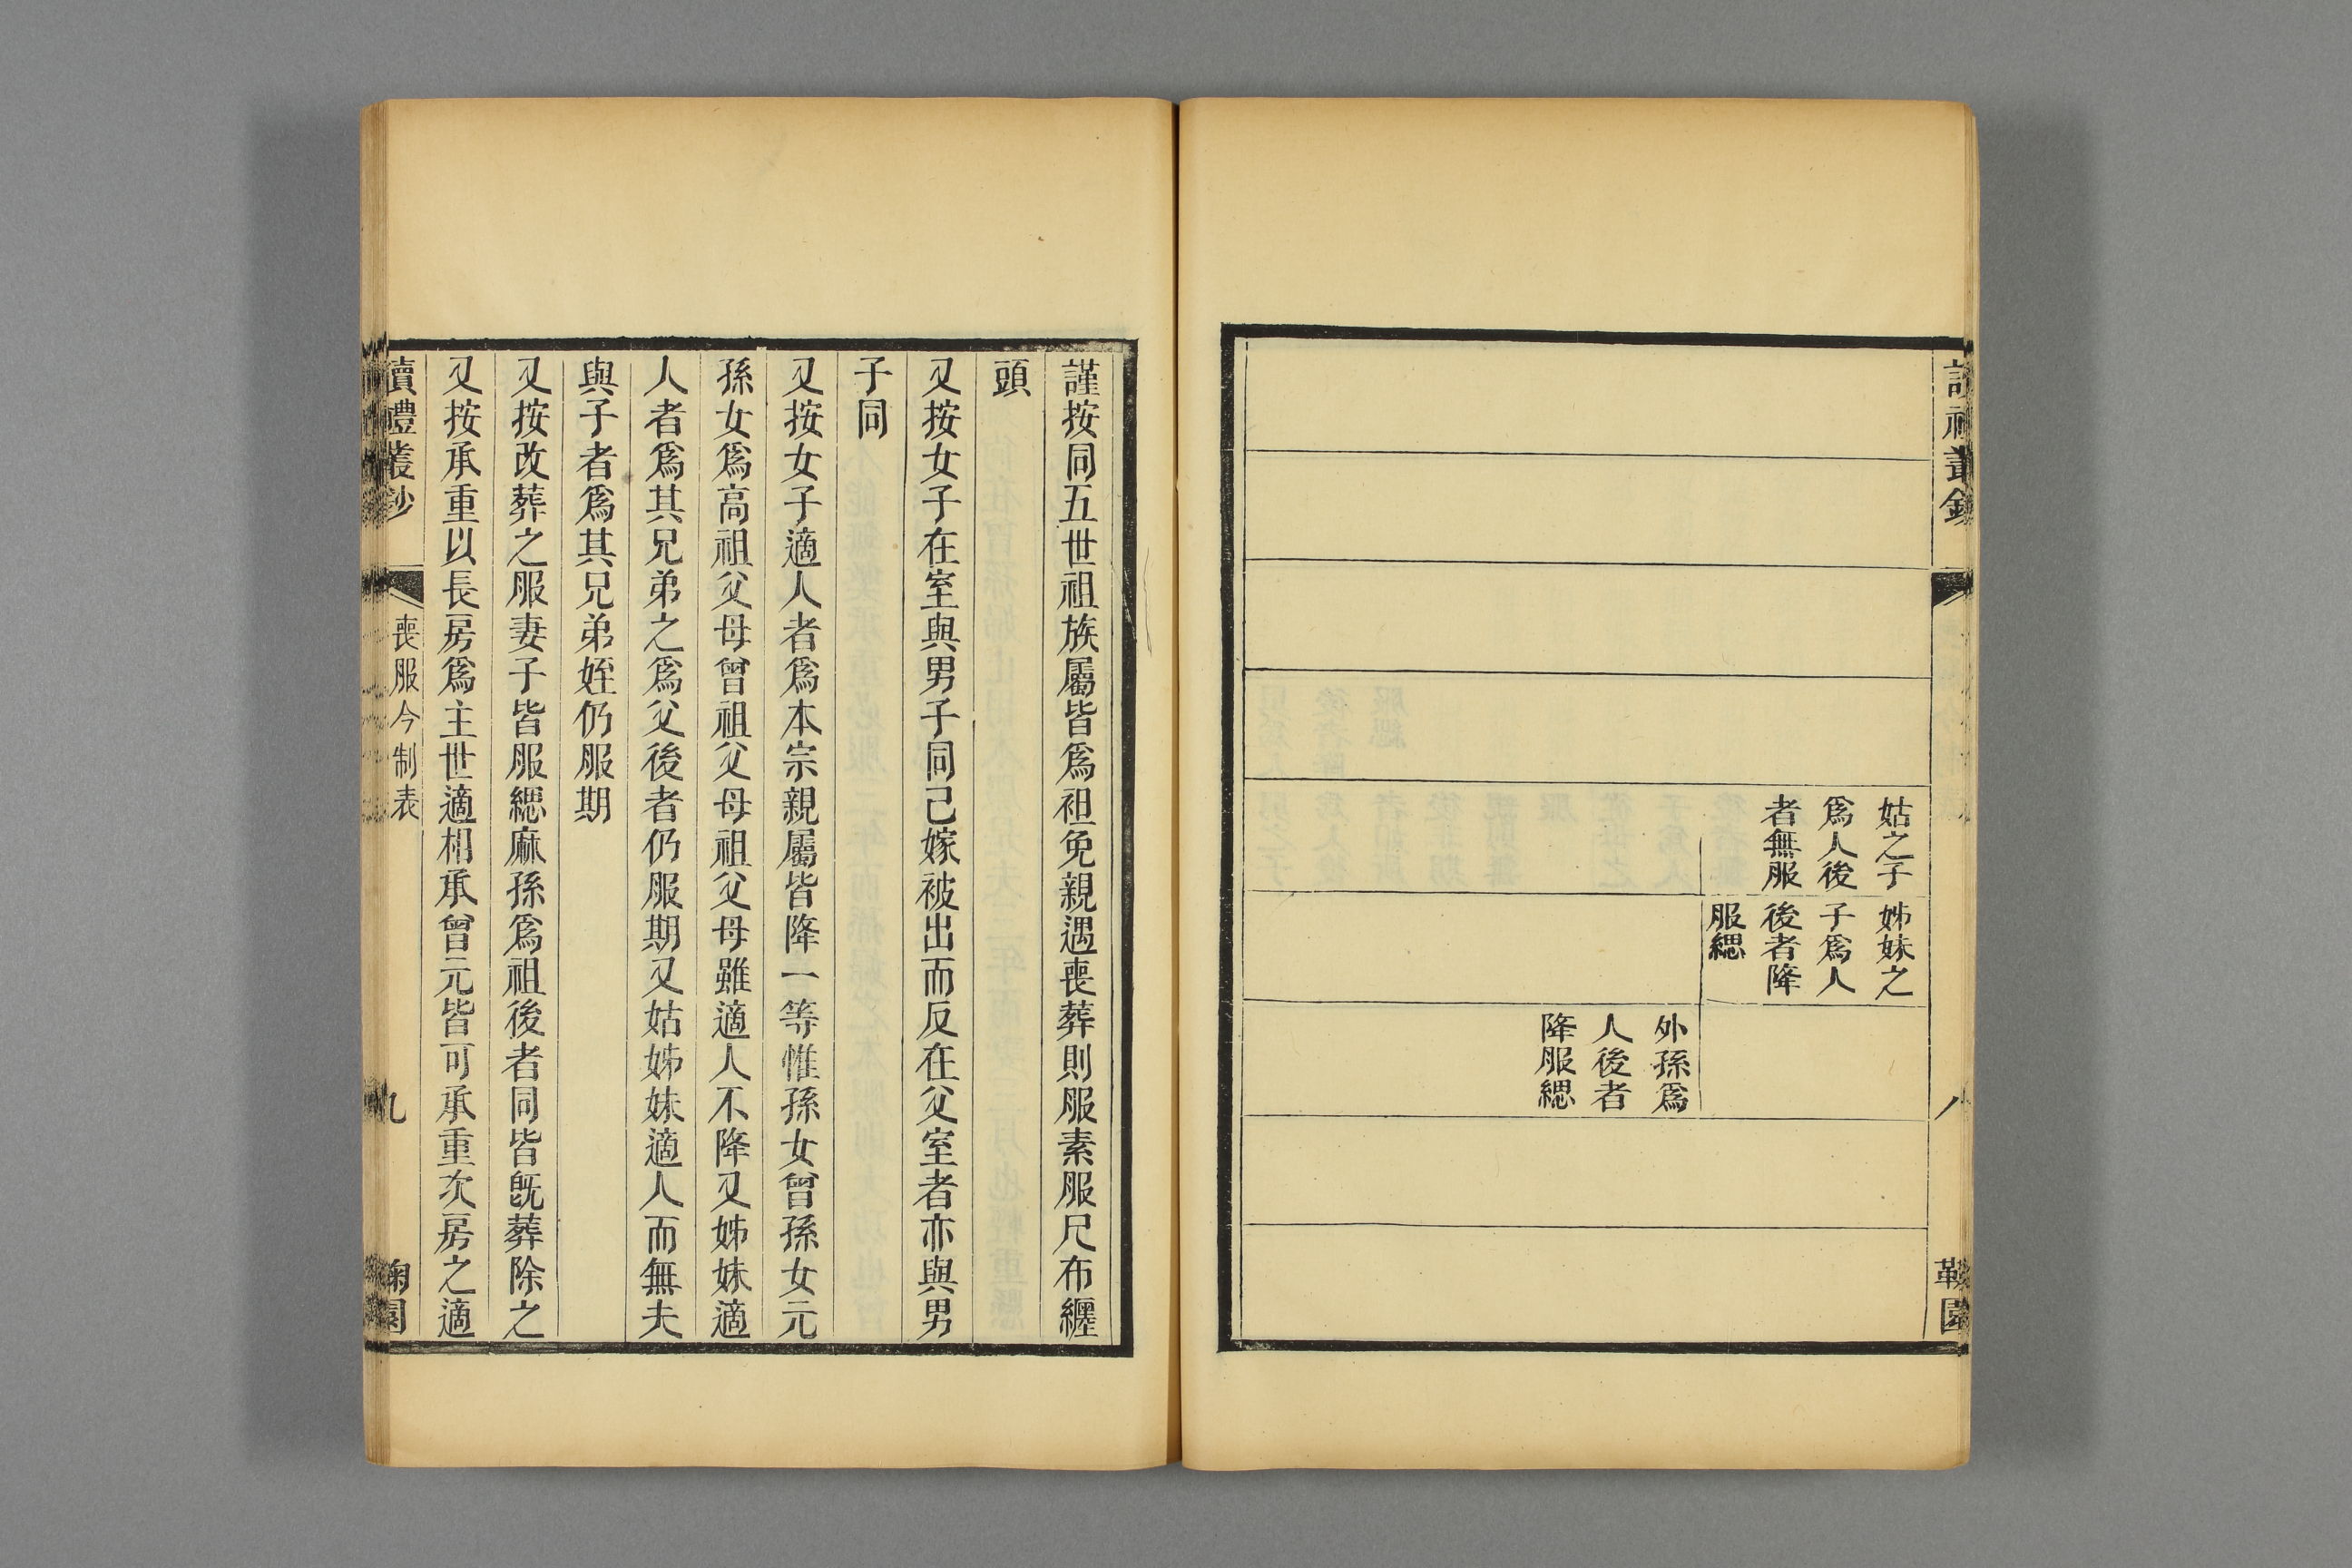 姑之子
爲人後
者無服
姊妹之
子爲人
後者降
服緦
外孫爲
人後者
降服緦
八
謹按同五世祖族屬皆爲袒免親遇喪葬則服素服尺布纏
頭
又按女子在室與男子同已嫁被出而反在父室者亦與男
子同
又按女子適人者爲本宗親屬皆降一等惟孫女曾孫女元
孫女爲高祖父母曾祖父母祖父母雖適人不降又姊妹適
人者爲其兄弟之爲父後者仍服期又姑姊妹適人而無夫
與子者爲其兄弟姪仍服期
又按改葬之服妻子皆服緦麻孫爲祖後者同皆旣葬除之
又按承重以長房爲主世適相承曾元皆可承重次房之適
讀禮叢鈔
喪服今制表
九